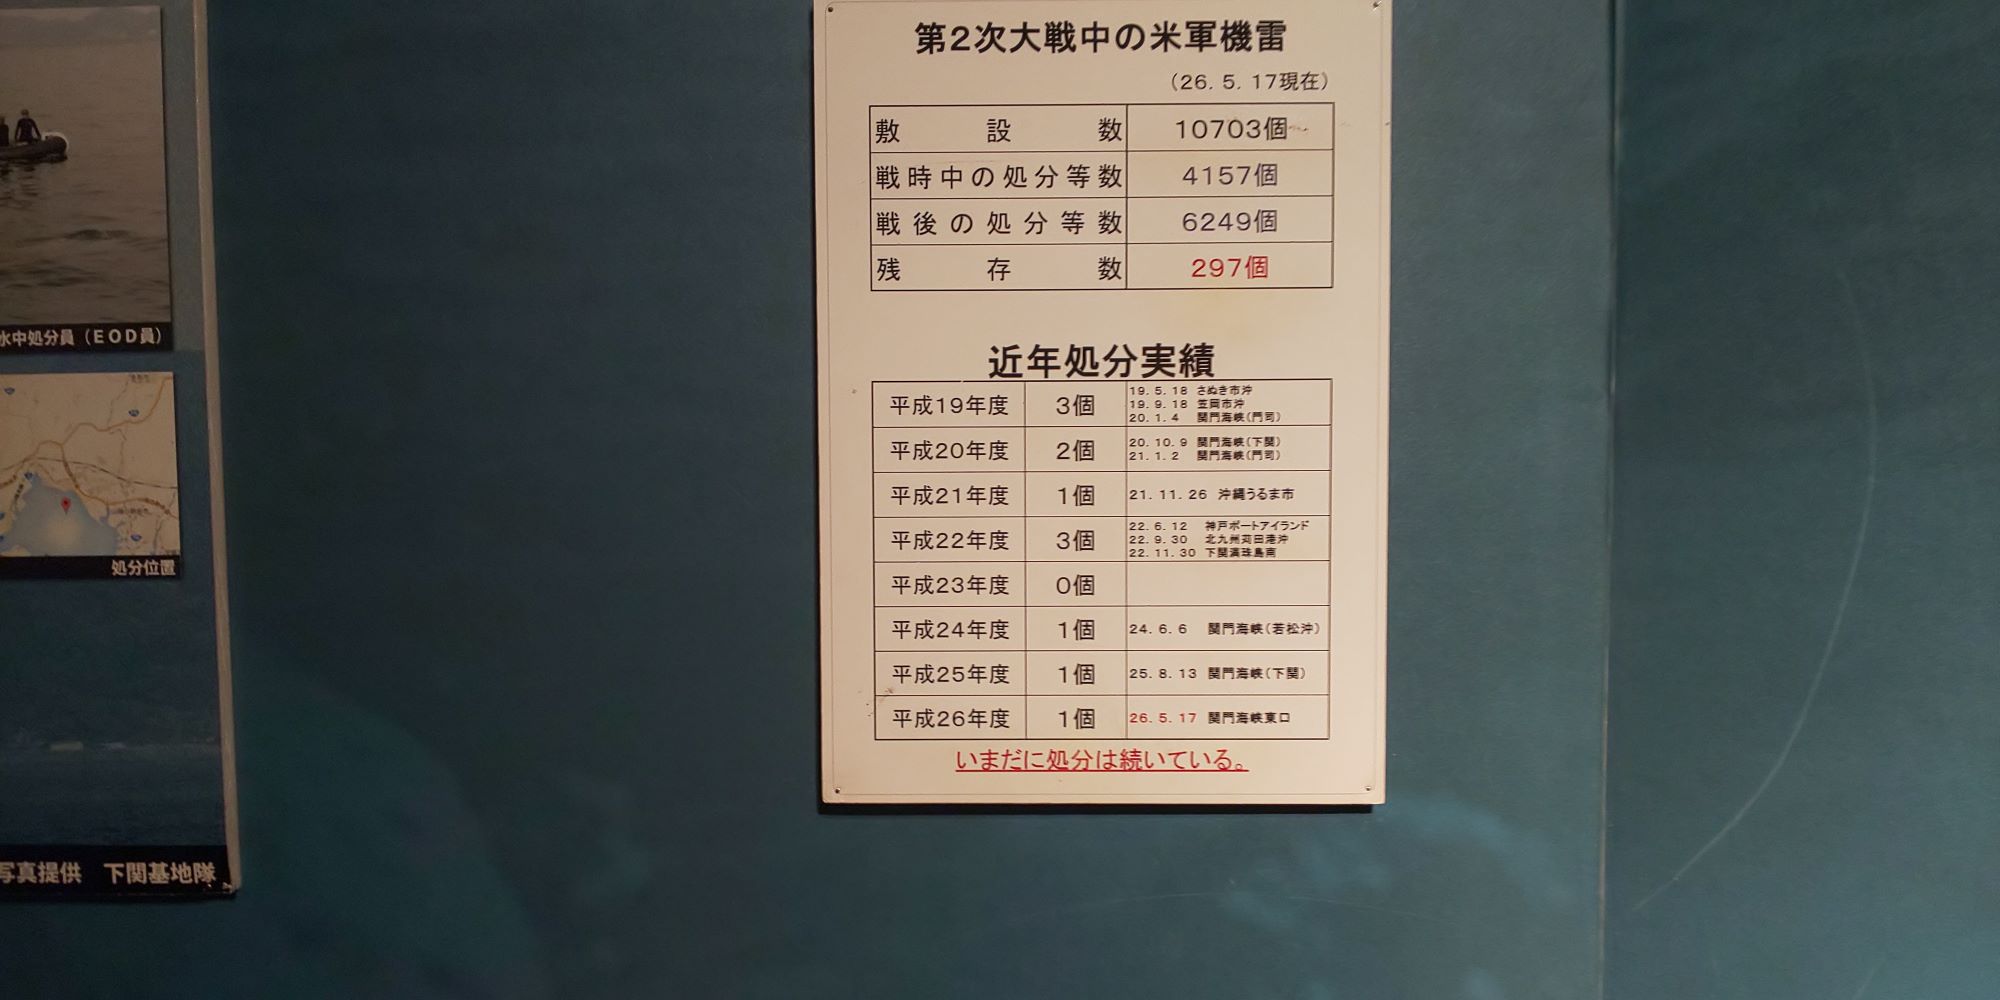 水中処分員（ＥＯＤ員）
処分位置
写真提供　下関基地隊
第２次大戦中の米軍機雷
（26. 5. 17現在）
敷設数 10703個
戦時中の処分等数 4157個
戦後の処分等数 6249個
残存数 297個
近年処分実績
平成19年度 3個 19. 5. 18 さぬき市沖
19. 9. 18 笠岡市沖
20. 1. 4 関門海峡（門司）
平成20年度 2個 20. 10. 9 関門海峡（下関）
21. 1. 2 関門海峡（門司）
平成21年度 1個 21. 11. 26 沖縄うるま市
平成22年度 3個 22. 6. 12 神戸ポートアイランド
22. 9. 30 北九州苅田港沖
22. 11. 30 下関満珠島南
平成23年度 0個
平成24年度 1個 24. 6. 6 関門海峡（若松沖）
平成25年度 1個 25. 8. 13 関門海峡（下関）
平成26年度 1個 26. 5. 17 関門海峡東口
いまだに処分は続いている。